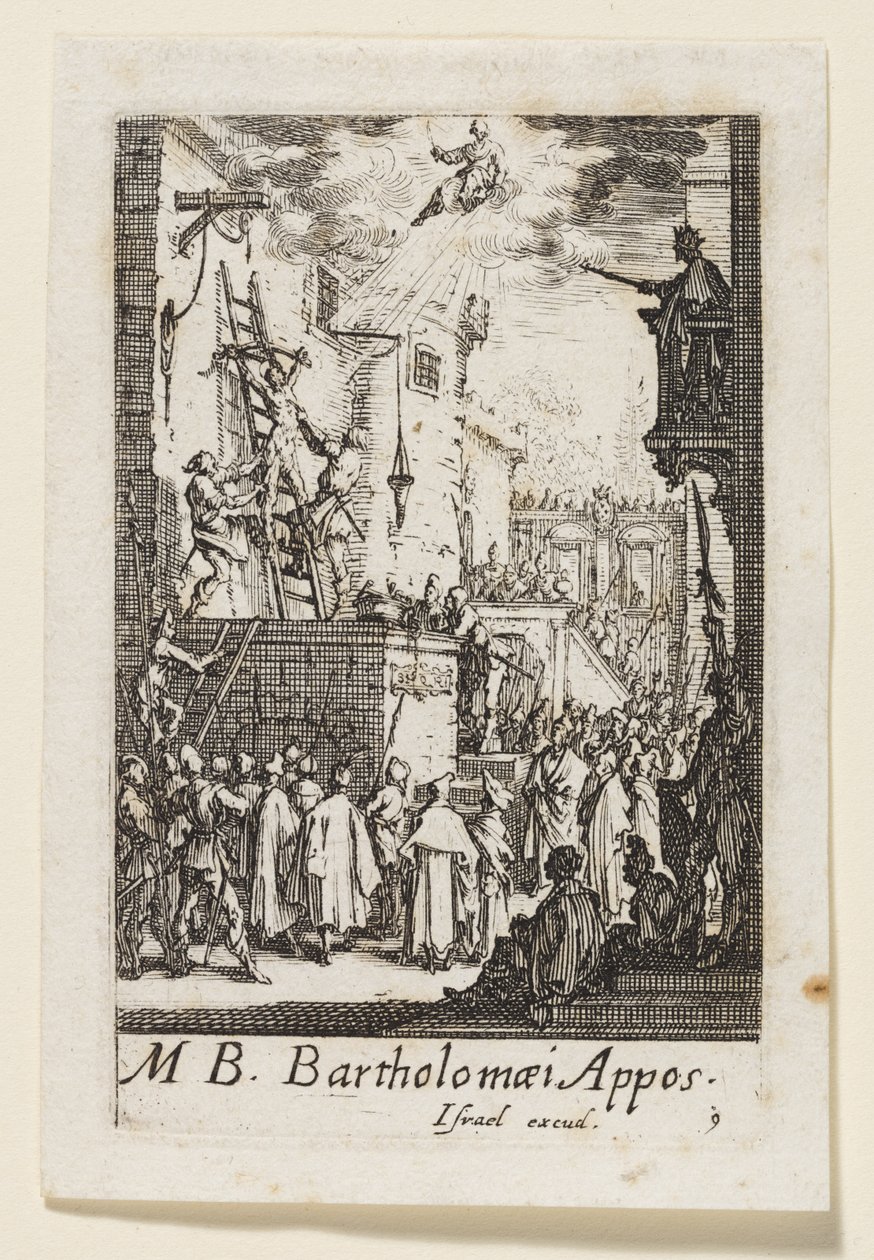 M B. Bartholomæi Appos.
Iſrael excud. 9